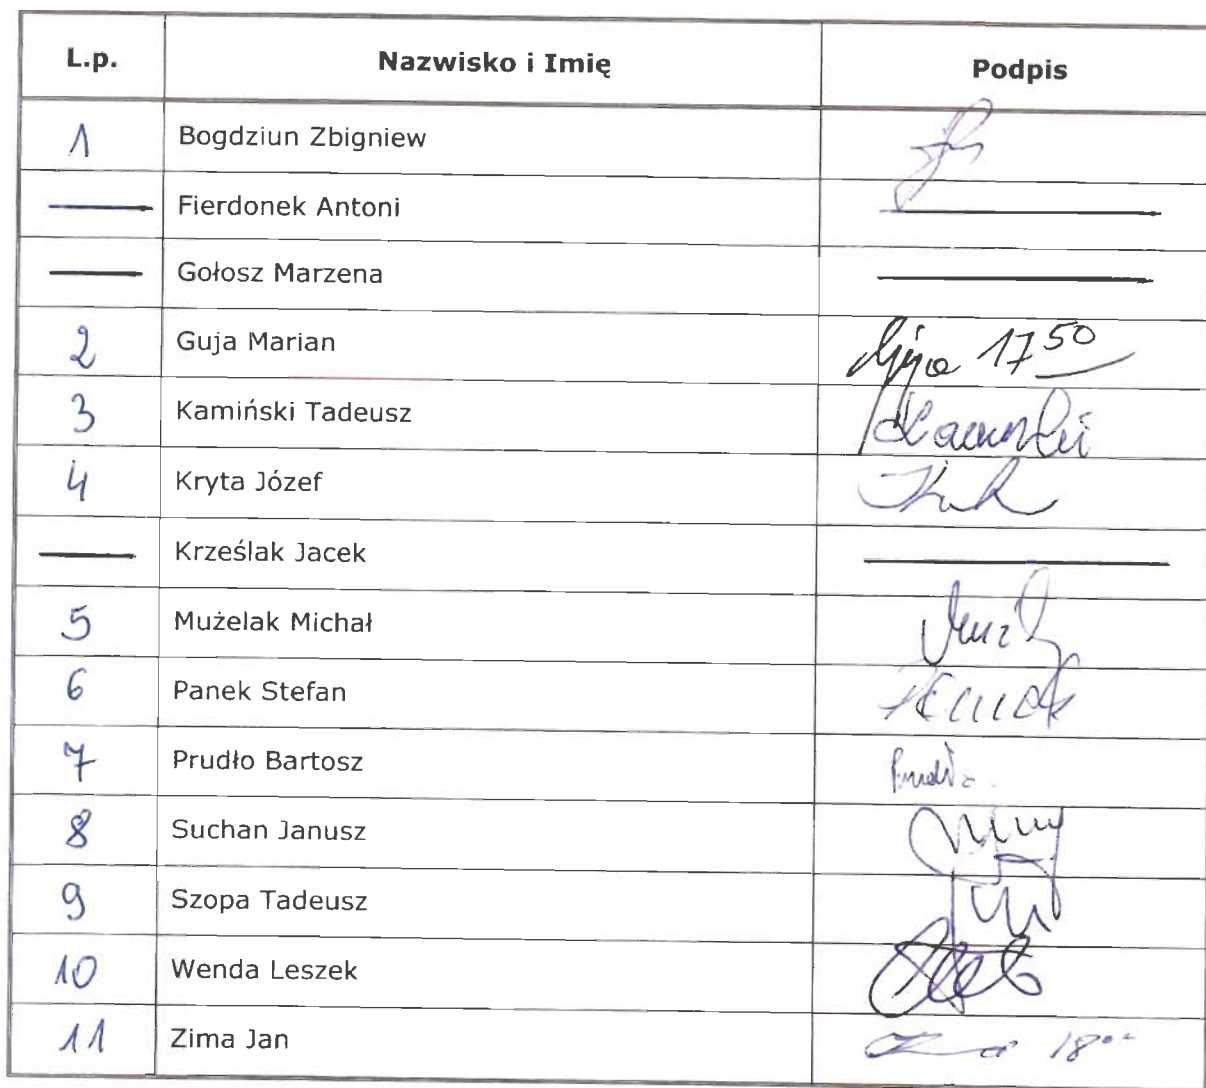 L.p. Nazwisko i Imię Podpis
1 Bogdziun Zbigniew
Fierdonek Antoni
Gołosz Marzena
2 Guja Marian Guja 17 50
3 Kamiński Tadeusz Kamiński
4 Kryta Józef
Krześlak Jacek
5 Mużelak Michał
6 Panek Stefan Panek
7 Prudło Bartosz
8 Suchan Janusz
9 Szopa Tadeusz
10 Wenda Leszek
11 Zima Jan 18